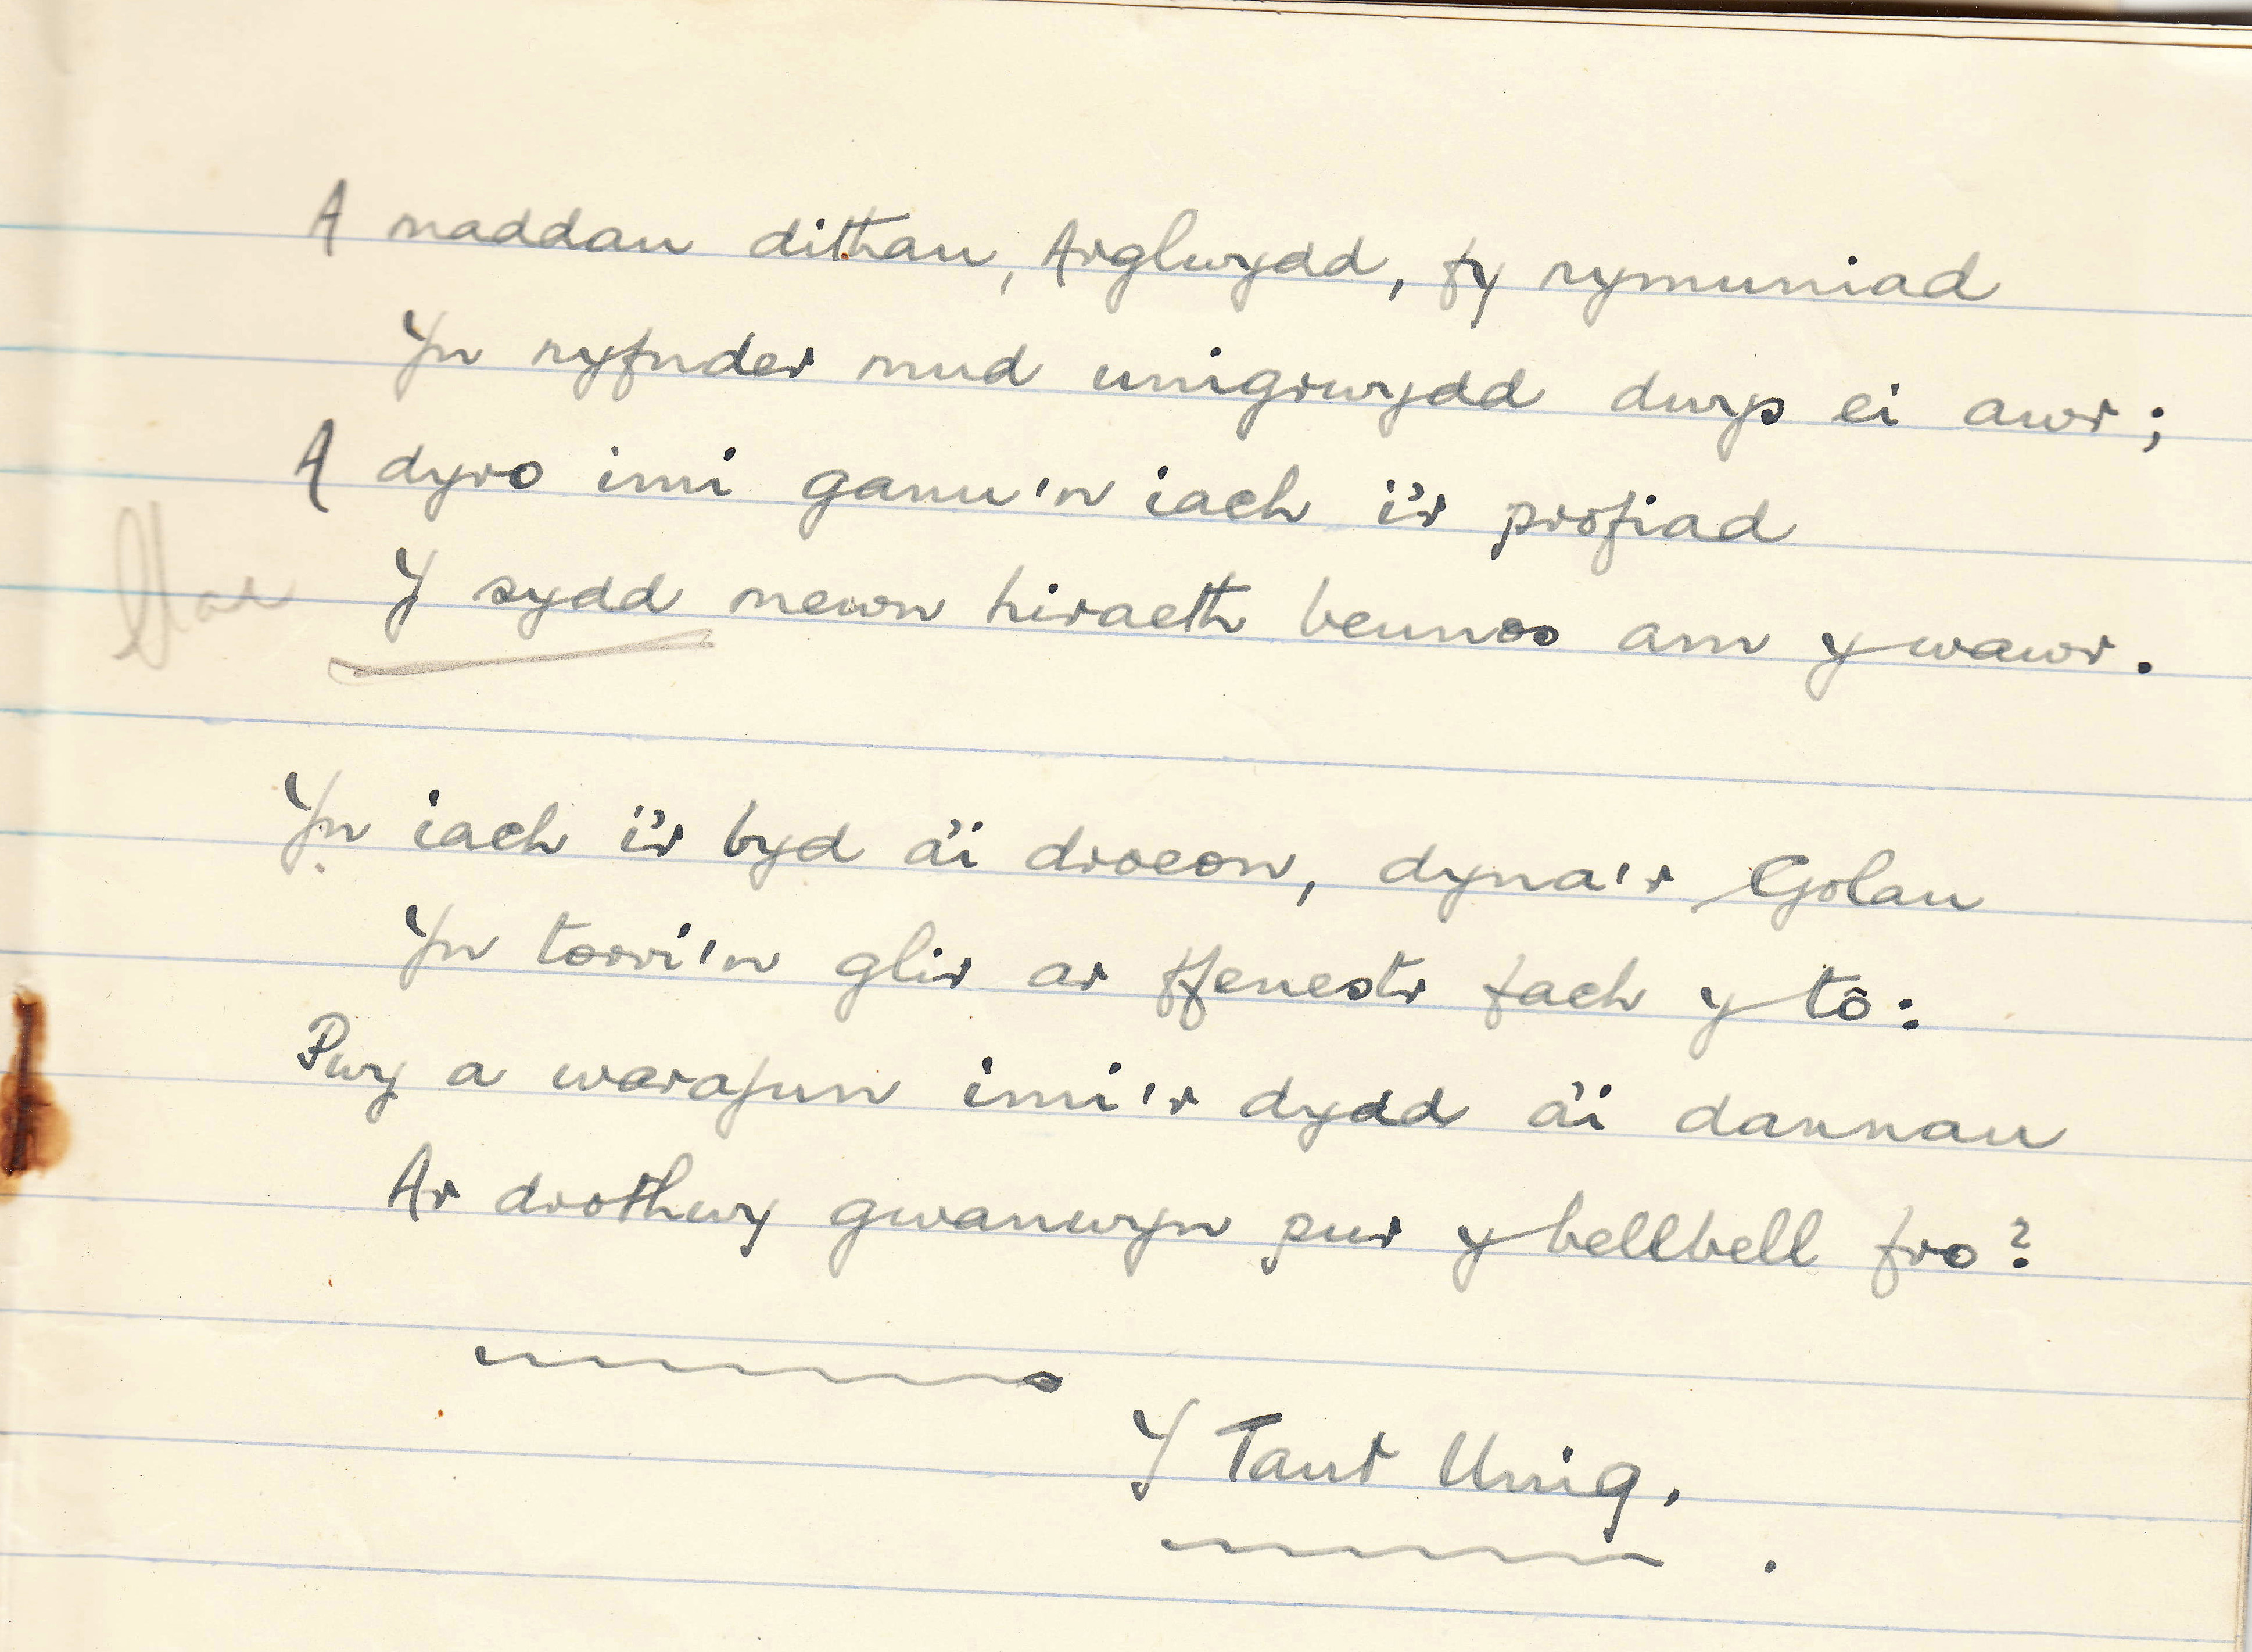 A maddau dithau, Arglwydd, fy nymuniad
Yn nyfnder mud unigrwydd dwys ei awr;
A dyro imi ganu'n iach i'r profiad
Y sydd mewn hiraeth beunos am y wawr.
Yn iach i'r byd a'i droeon, dyna'r Golau
Yn torri'n glir ar ffenestr fach y tô:
Pwy a warafun imi'r dydd a'i dannau
Ar drothwy gwanwyn pur y bellbell fro?
Y Tant Unig.